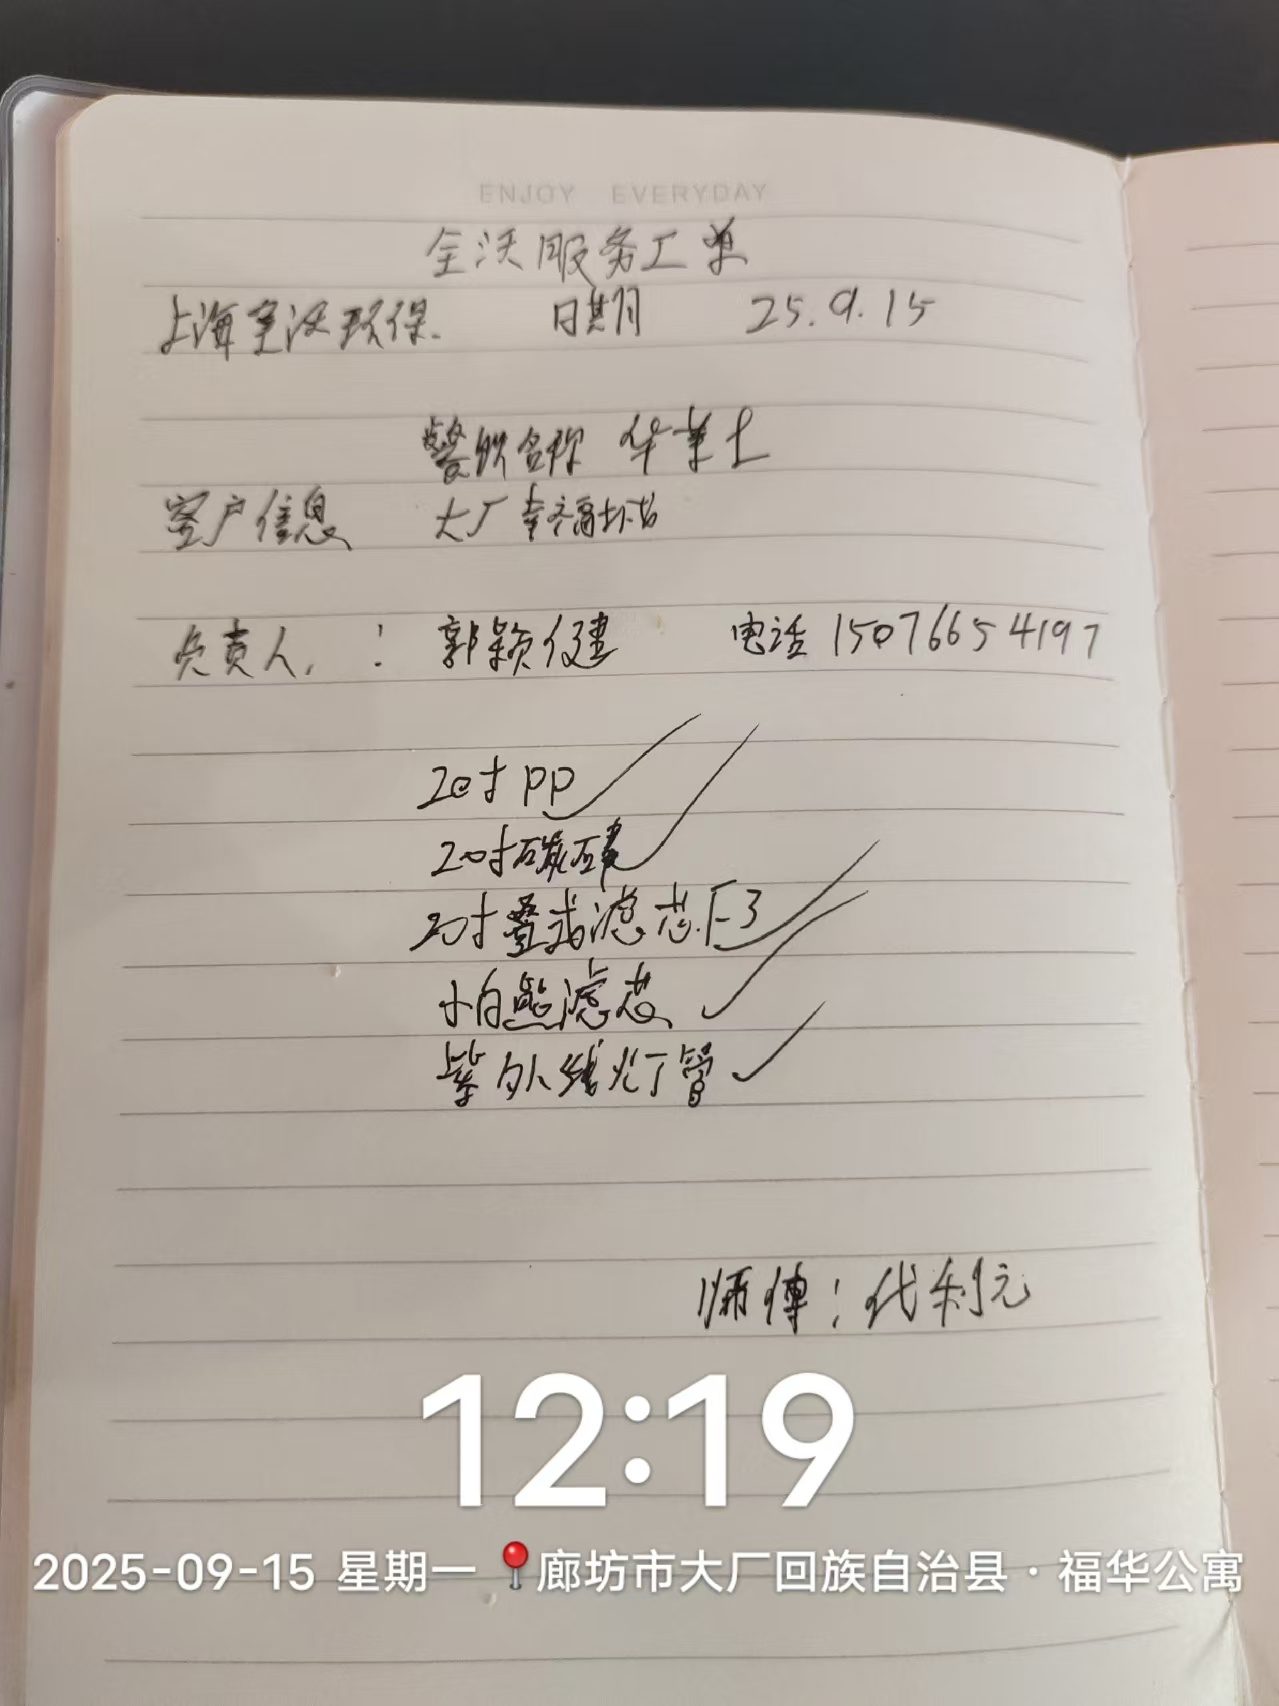 ENJOY EVERYDAY
全沃服务工单
上海全沃环保. 日期 25.9.15
餐饮名称 华莱士
客户信息 大厂幸福城店
负责人: 郭颖健 电话 15076654197
20寸PP
20寸碳
20寸叠式滤芯F3
小白熊滤芯
紫外线灯管
师傅:代利元
12:19
2025-09-15 星期一 廊坊市大厂回族自治县·福华公寓